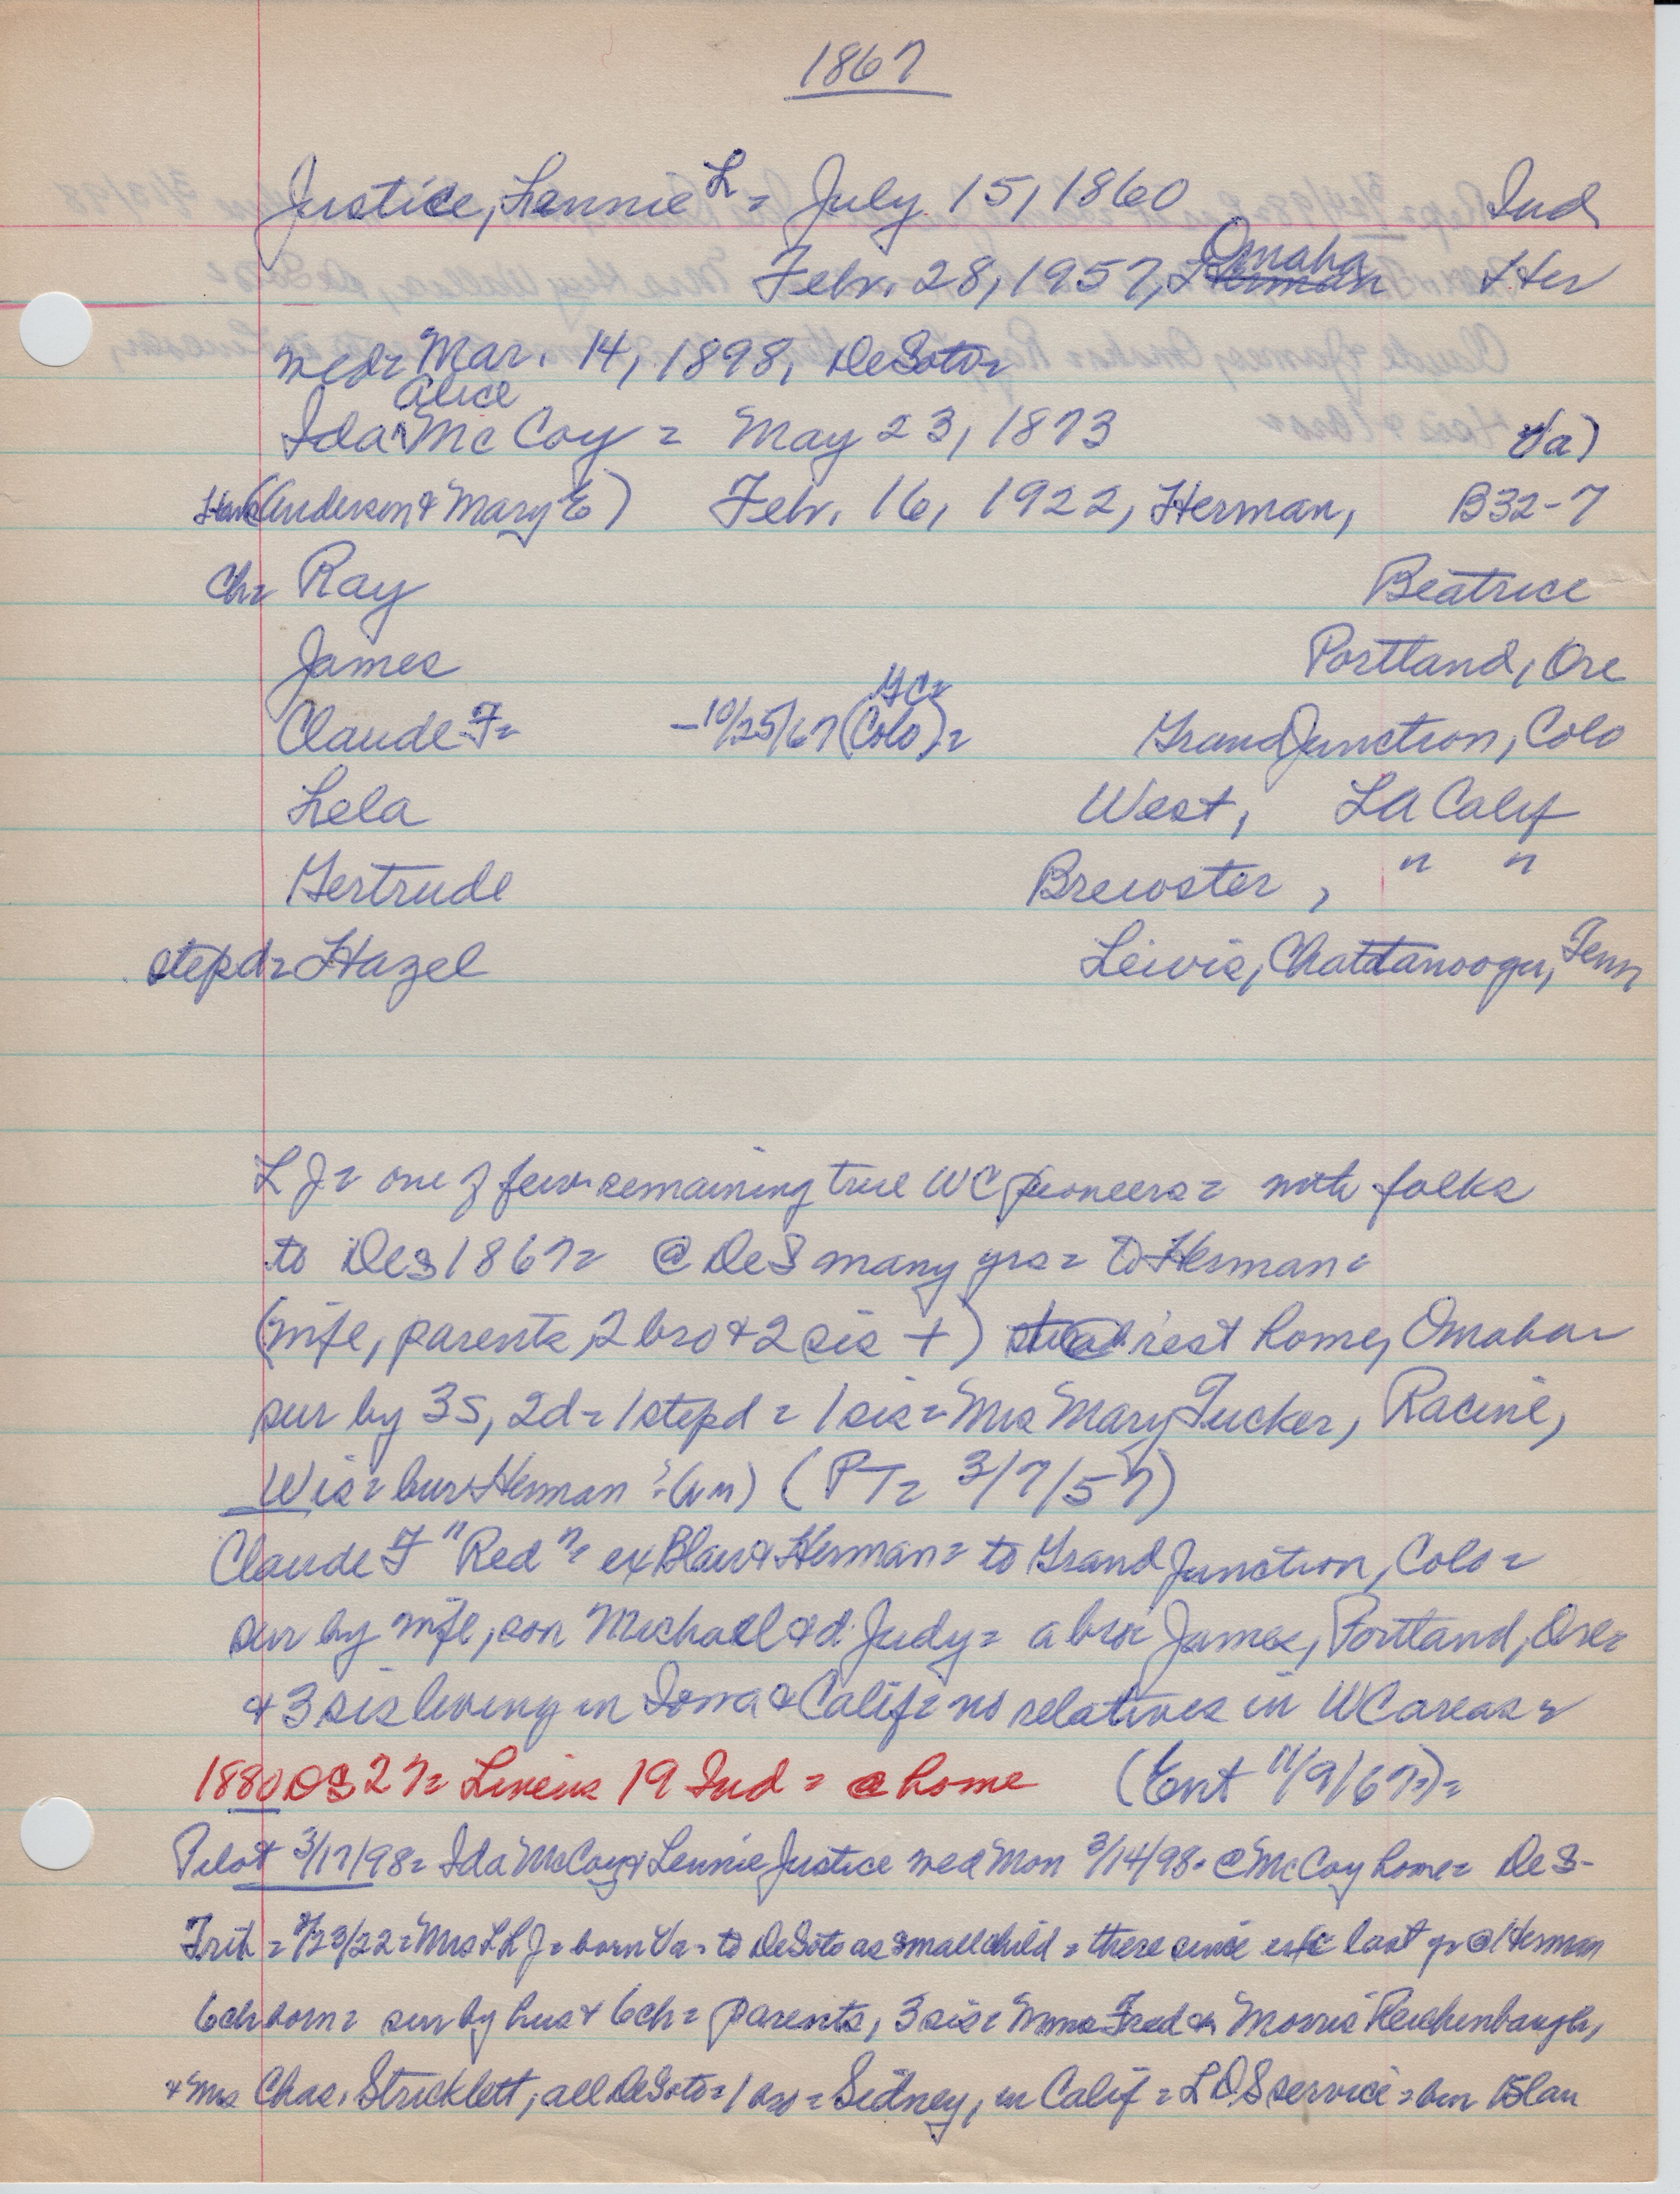 1867
Justice, Lennie L = July 15, 1860 Ind
Febr. 28, 1957, Herman Omaha + Her
wed= Mar. 14, 1898, DeSoto=
Ida Alice McCoy = May 23, 1873 Va)
(Anderson & Mary E) Febr. 16, 1922, Herman, B32-7
ch= Ray Beatrice
James Portland, Ore
Claude F= -10/25/67 (Colo)= GrandJunction, Colo
Lela West, LA Calif
Gertrude Brewster, " "
stepd= Hazel Lewis, Chattanooga, Tenn
L J= one of few remaining true WC pioneers= with folks
to DeS 1867= @ DeS many yrs= to Herman=
(wife, parents, 2 bro & 2 sis +) rest home, Omaha=
sur by 3s, 2d= 1 stepd= 1 sis= Mrs Mary Tucker, Racine,
Wis= bur Herman (PT= 3/7/57)
Claude F "Red"= ex Blair & Herman= to Grand Junction, Colo=
sur by wife, son Michael & d Judy= a bro= James, Portland, Ore=
& 3 sis living in Iowa & Calif= no relatives in WC areas=
1880 DS 27= Linens 19 Ind = @ home (Ent 11/9/67=)=
Pilot 3/17/98= Ida McCoy & Lennie Justice wed Mon 3/14/98- @ McCoy home= DeS-
Trib = 2/23/22= Mrs L L J= born Va- to DeSoto as small child = there since exc last yr @ Herman
6ch born= sur by hus & 6ch= parents, 3 sis= Mmes Fred & Morris Reichenbaugh,
& Mrs Chas. Stricklett, all DeSoto= 1 bro = Sidney, in Calif = LDS service = bur Blair